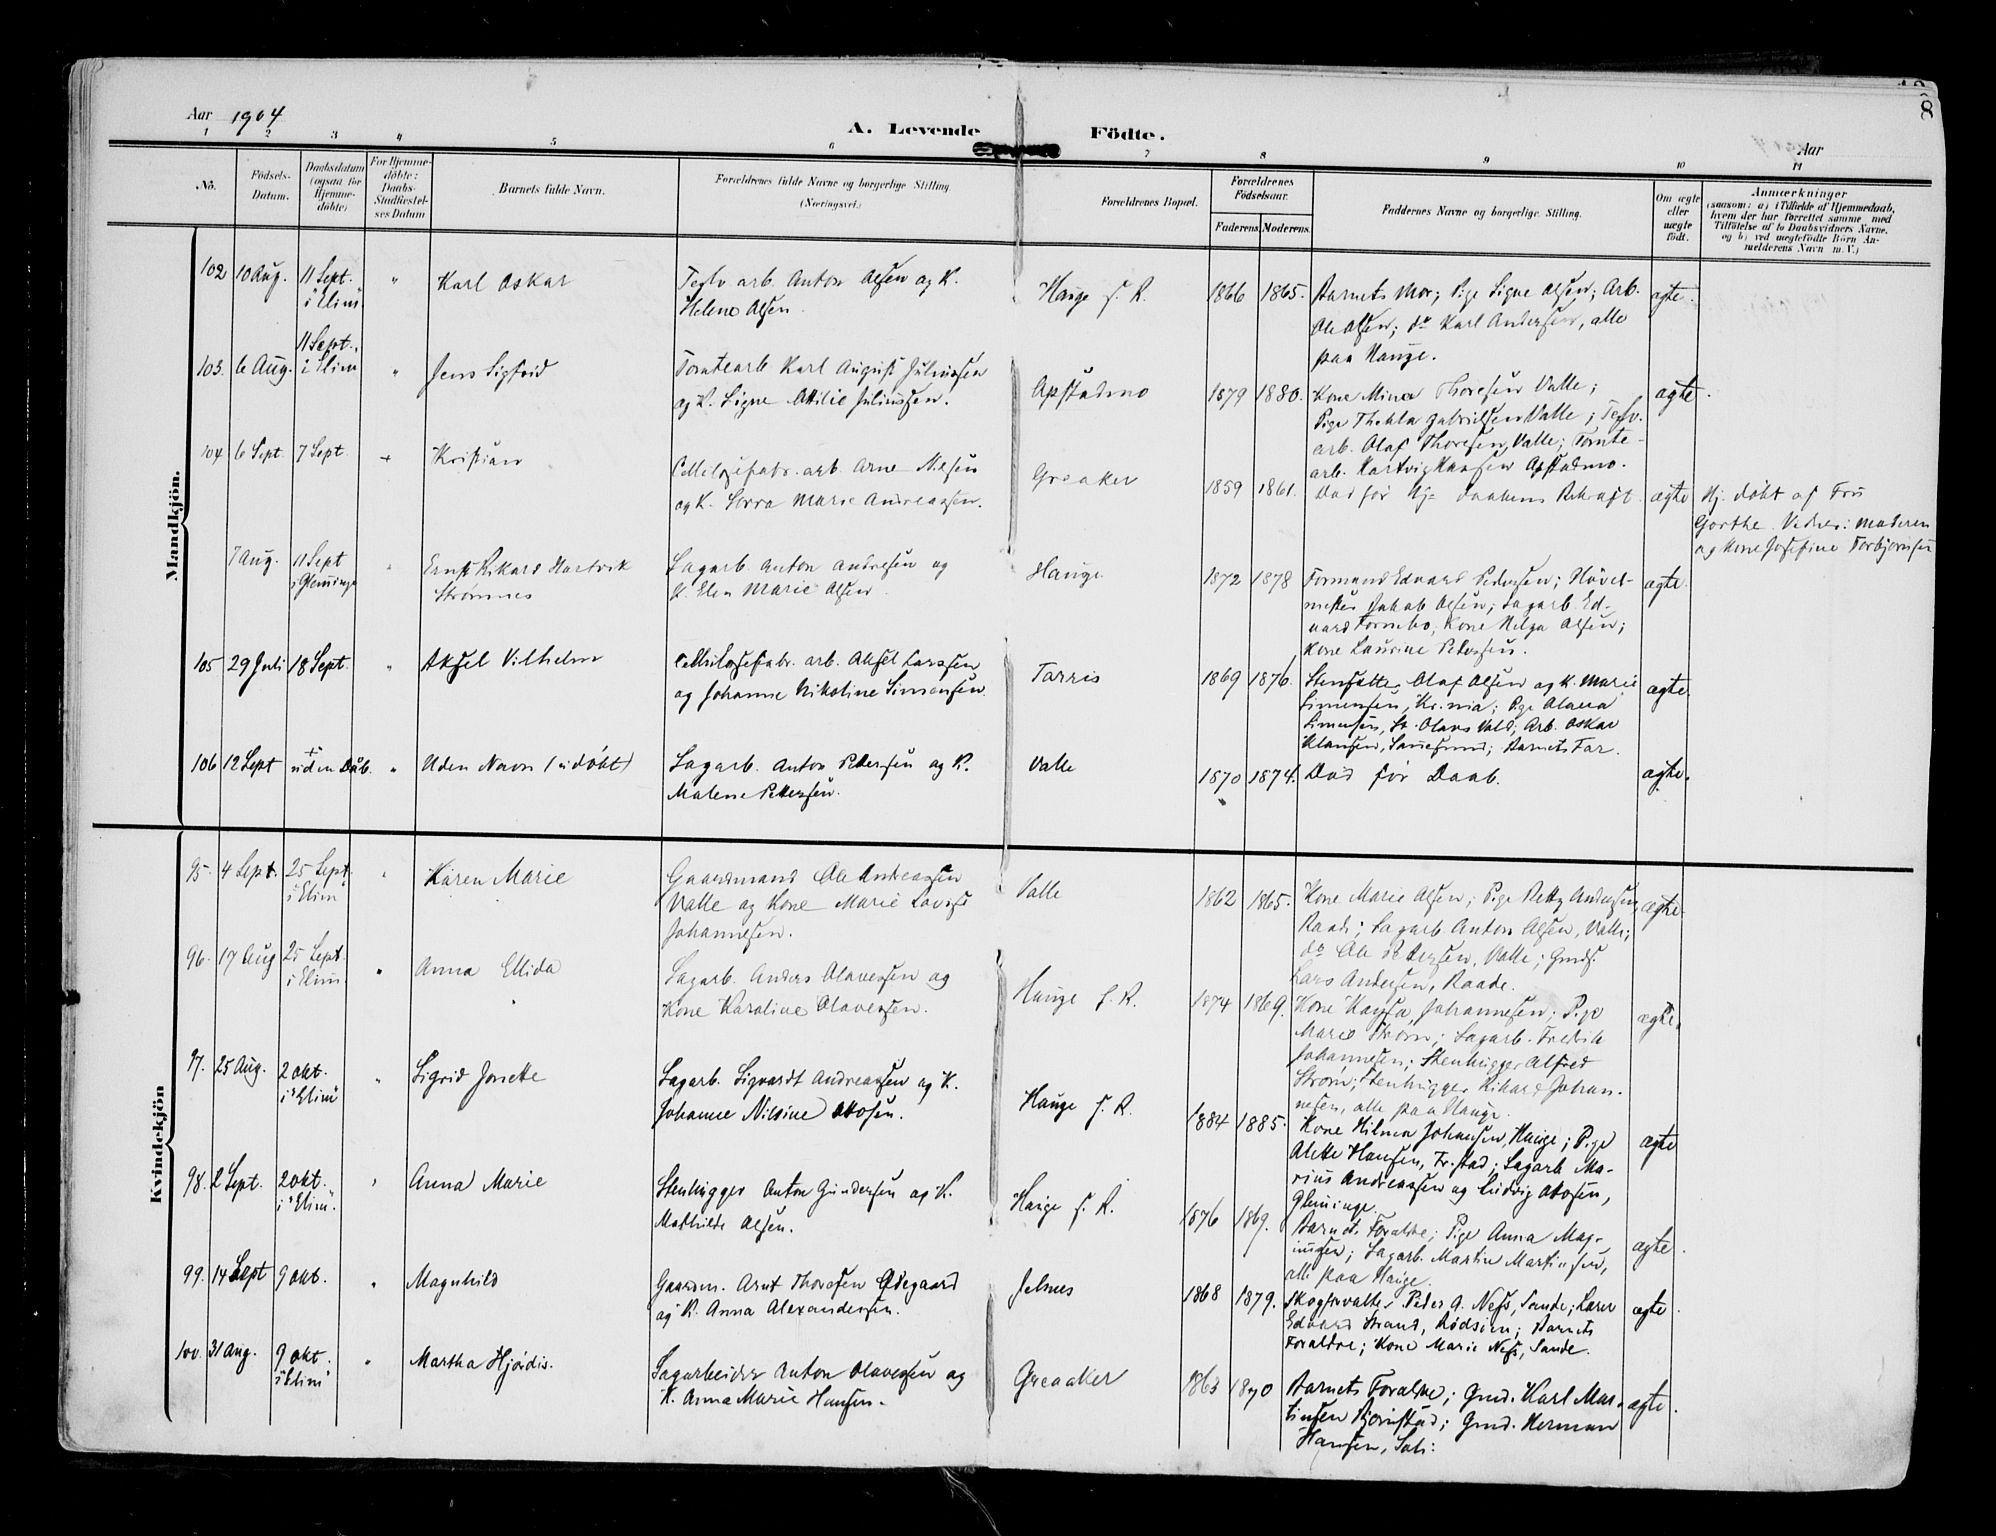 Aar 1904
A. Levende Födte.
Aar
8
1 2 3 4 5 6 7 8 9 10 11
No.
Födsels-Datum.
Daabsdatum (ogsaa for Hjemme-döbte)
For Hjemme-döbte: Daabs-Stadfæstel-ses Datum
Barnets fulde Navn.
Forældrenes fulde Navne og borgerlige Stilling (Næringsvei.)
Forældrenes Bopæl.
Forældrenes Födselsaar.
Faderens. Moderens.
Faddernes Navne og borgerlige Stilling.
Om ægte eller uægte födt.
Anmærkninger
(saasom: a) i Tilfælde af Hjemmedaab,
hvem der har forrettet samme med
Tilföielse af to Daabsvidners Navne.
og b) ved uægtefödte Börn An-
melderens Navn m. V.)
Mandkjön.
102 10 Aug. 11 Sept. i "Elim" " Karl Oskar
Teglv. arb. Anton Olsen og K.
Helene Olsen.
Hauge f. R. 1866 1865.
Barnets Mor; Pige Signe Olsen; Arb.
Ole Olsen; do Karl Andersen, alle
paa Hauge.
ægte.
103. 6 Aug. 11 Sept. i Elim " Jens Sigfrid
Tomtearb. Karl August Juliussen
og K. Signe Otilie Juliussen.
Opstadmo 1879 1880.
Kone Mina Thoresen Valle;
Pige Thekla Gabrielsen Valle; Teglv.
arb. Olaf Thoresen, Valle; Tomte-
arb. Hartvig Hansen Opstadmo.
ægte.
104 6 Sept. 7 Sept. + Kristian
Cellulosefabr. arb. Arne Nilsen
og K. Lovra Marie Andreassen.
Greaker 1859 1861.
Død før Hj= daabens Bekræft.
ægte
Hj. døbt af Fru
Gorthe. Vidner: Moderen
og Kone Josefine Torbjørnsen
7 Aug. 11 Sept i Glemminge " Ernst Rikard Hartvik
Strømnes
Sagarb. Anton Andresen og
K. Elen Marie Olsen.
Hauge. 1872 1878
Formand Edvard Pedersen; Høvel-
mester Jakob Olsen; Sagarb. Ed-
vard Tornbo; Kone Helga Olsen;
Kone Laurine Pedersen.
ægte.
105 29 Juli 18 Sept. " Aksel Vilhelm
Cellulosefabr. arb. Aksel Larssen
og Johanne Nikoline Simensen.
Tarris 1869 1876.
Stenfatter Olaf Olsen og K. Marie
Simensen, Kr.nia; Pige Olava
Simensen, St. Olavs Vold; Arb. Oskar
Klausen, Sannesund; Barnets Far.
ægte.
106 12 Sept + uden Daab. " Uden Navn (udøbt)
Sagarb. Anton Pedersen og K.
Malene Pettersen.
Valle 1870 1874.
Død før Daab.
ægte.
Kvindekjön
95. 4 Sept. 25 Sept. i Elim " Karen Marie
Gaardmand Ole Andreassen
Valle og Kone Marie Lovise
Johannesen.
Valle 1862 1865.
Kone Marie Olsen; Pige Betty Andersen,
Raade; Sagarb. Anton Olsen, Valle;
do Ole Pedersen, Valle; Gmds
Lars Andersen, Raade.
ægte.
96. 17 Aug 25 Sept. i Elim. " Anna Ellida
Sagarb. Anders Olavessen og
Kone Karoline Olavessen.
Hauge f. R. 1874 1869.
Kone Kaysa Johannesen; Pige
Marie Strøm; Sagarb. Fredrik
Johannesen; Stenhugger Alfred
Strøm; Stenhugger Rikard Johan-
nesen, alle paa Hauge.
ægte.
97. 25 Aug. 2 Okt. i "Elim" " Sigrid Jonette
Sagarb. Sigvardt Andreassen og K.
Johanne Nilsine Ottosen.
Hauge f. R. 1884 1885.
Kone Hilma Johansen, Hauge; Pige
Alette Hansen, Fr.stad; Sagarb. Ma-
rius Andreassen og Ludvig Ottosen,
Glemminge.
ægte
98. 2 Sept. 2 Okt. i "Elim". " Anna Marie
Stenhugger Anton Gundersen og K.
Mathilde Olsen.
Hauge f. R. 1876 1869.
Barnets Forældre; Pige Anna Mag-
nussen; Sagarb. Martin Martinsen,
alle paa Hauge.
ægte.
99. 14 Sept 9 Okt. " Magnhild
Gaardm. Arnt Thoresen Ødegaard
og K. Anna Alexandersen.
Jelsnes 1868 1879.
Skogforvalter Peder A. Næss, Sande; Lærer
Edvard Strand, Rødsien; Barnets
Forældre; Kone Marie Næss, Sande.
ægte.
100. 31 Aug. 9 Okt. i "Elim" " Martha Hjørdis.
Sagarbeider Anton Olavessen og
K. Anna Marie Hansen.
Greaaker 1863 1870
Barnets Forældre; Gmd. Karl Mar-
tinsen Bjørnstad; Gmd. Herman
Hansen, Soli.
ægte.